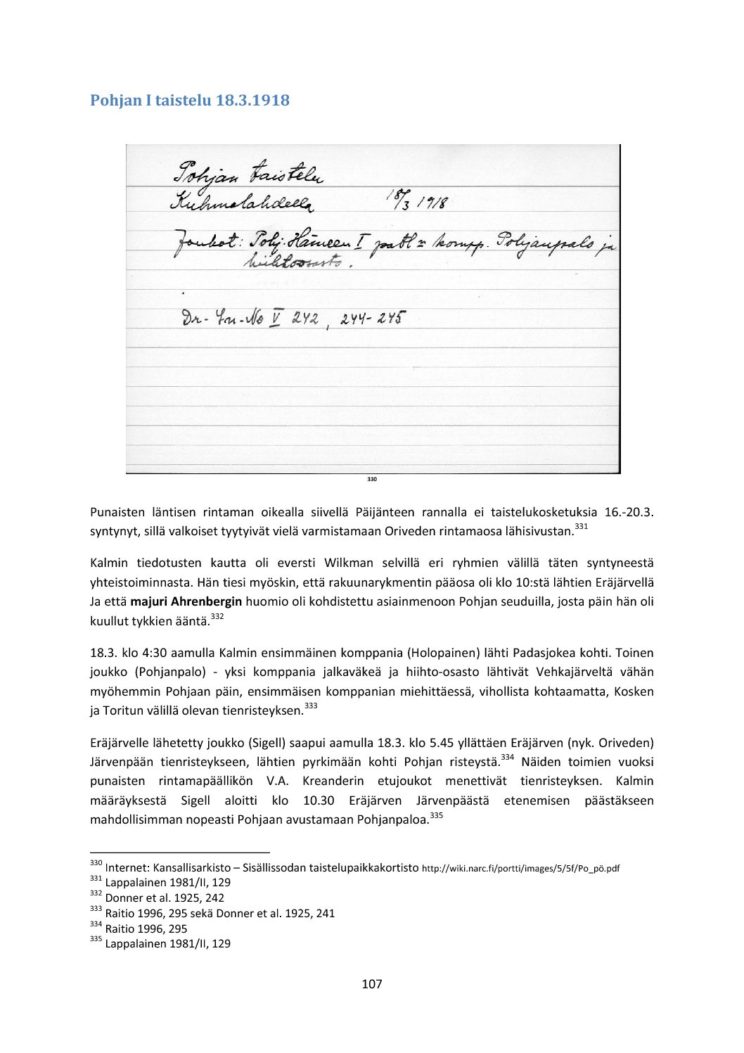 Pohjan I taistelu 18.3.1918
Pohjan taistelu
Kuhmalahdella 18/3 1918
Joukot: Pohj. Hämeen I patl = kompp. Pohjanpalo ja
hiihtoosasto.
Dr-Lu-No V 242, 244-245
330
Punaisten läntisen rintaman oikealla siivellä Päijänteen rannalla ei taistelukosketuksia 16.-20.3.
syntynyt, sillä valkoiset tyytyivät vielä varmistamaan Oriveden rintamaosa lähisivustan.331
Kalmin tiedotusten kautta oli eversti Wilkman selvillä eri ryhmien välillä täten syntyneestä
yhteistoiminnasta. Hän tiesi myöskin, että rakuunarykmentin pääosa oli klo 10:stä lähtien Eräjärvellä
Ja että majuri Ahrenbergin huomio oli kohdistettu asiainmenoon Pohjan seuduilla, josta päin hän oli
kuullut tykkien ääntä.332
18.3. klo 4:30 aamulla Kalmin ensimmäinen komppania (Holopainen) lähti Padasjokea kohti. Toinen
joukko (Pohjanpalo) - yksi komppania jalkaväkeä ja hiihto-osasto lähtivät Vehkajärveltä vähän
myöhemmin Pohjaan päin, ensimmäisen komppanian miehittäessä, vihollista kohtaamatta, Kosken
ja Toritun välillä olevan tienristeyksen.333
Eräjärvelle lähetetty joukko (Sigell) saapui aamulla 18.3. klo 5.45 yllättäen Eräjärven (nyk. Oriveden)
Järvenpään tienristeykseen, lähtien pyrkimään kohti Pohjan risteystä.334 Näiden toimien vuoksi
punaisten rintamapäällikön V.A. Kreanderin etujoukot menettivät tienristeyksen. Kalmin
määräyksestä Sigell aloitti klo 10.30 Eräjärven Järvenpäästä etenemisen päästäkseen
mahdollisimman nopeasti Pohjaan avustamaan Pohjanpaloa.335
330 Internet: Kansallisarkisto – Sisällissodan taistelupaikkakortisto http://wiki.narc.fi/portti/images/5/5f/Po_pö.pdf
331 Lappalainen 1981/II, 129
332 Donner et al. 1925, 242
333 Raitio 1996, 295 sekä Donner et al. 1925, 241
334 Raitio 1996, 295
335 Lappalainen 1981/II, 129
107